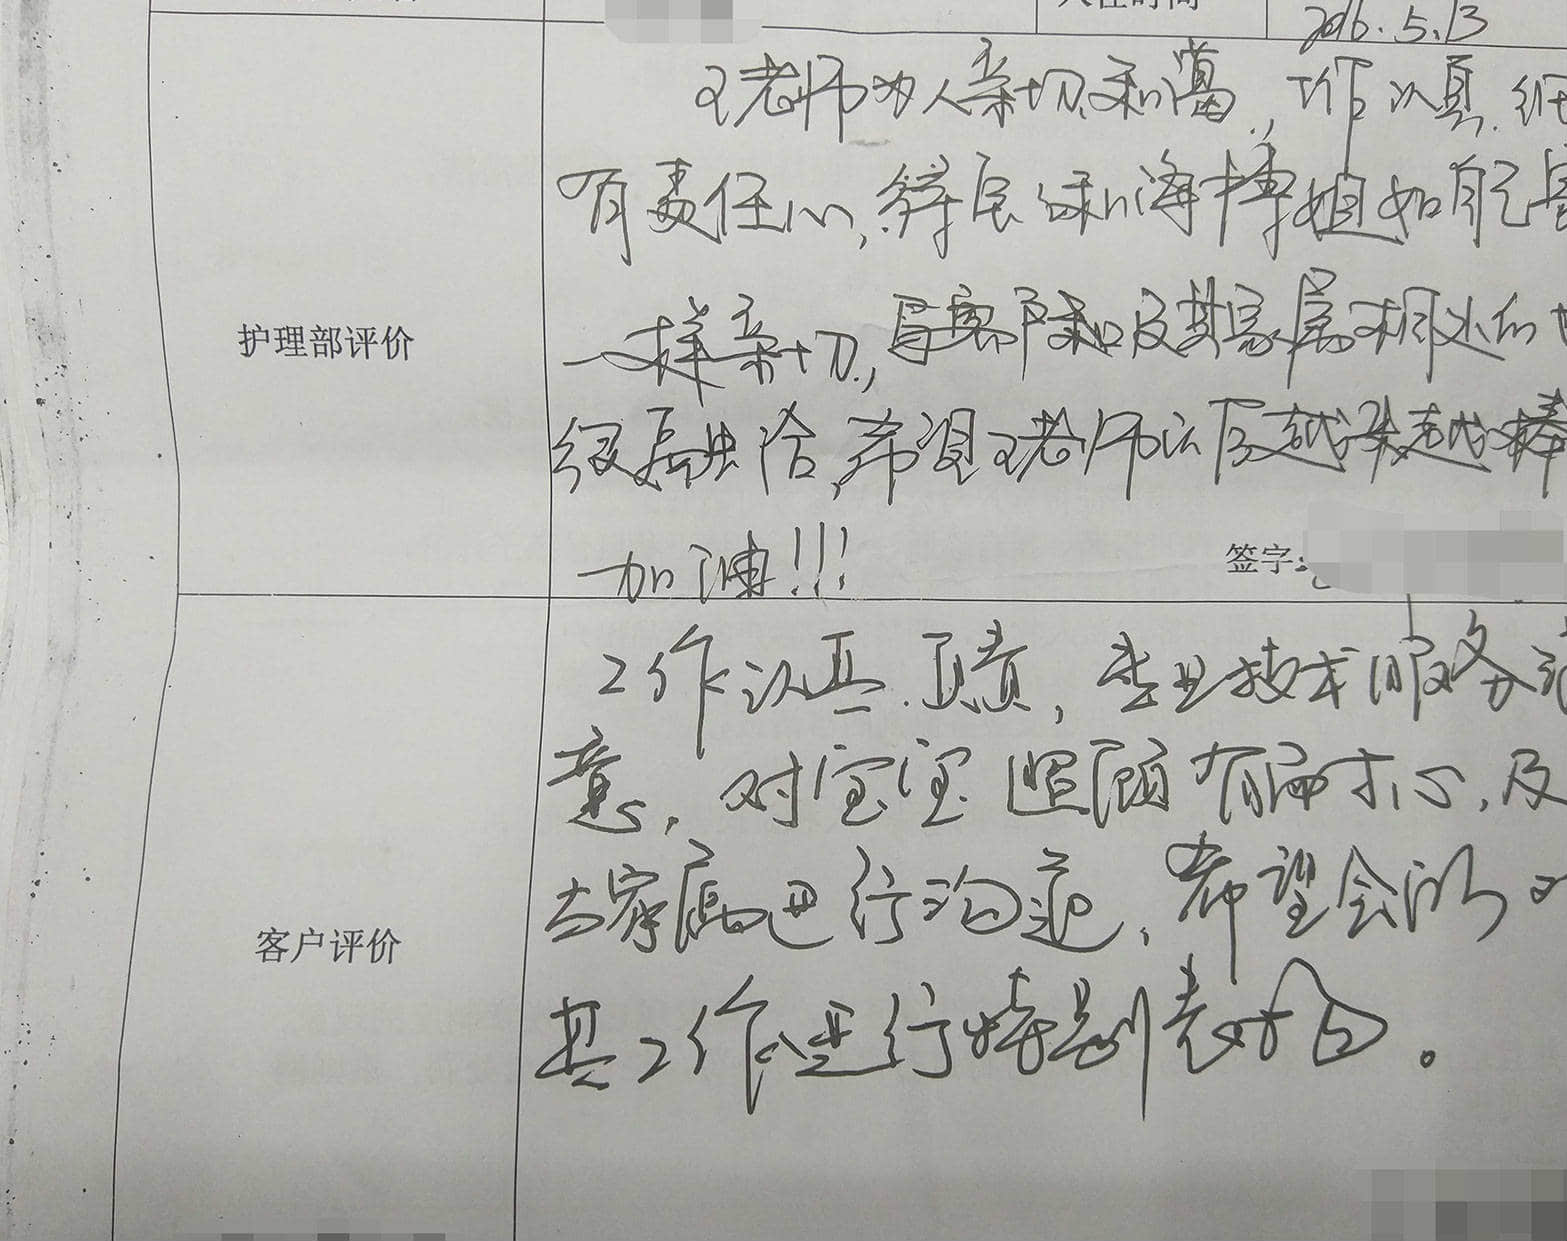 入住时间
2016.5.13
王老师为人亲切和蔼，工作认真.细
有责任心，待宝和海博姐如自己亲
护理部评价
一样亲切，与客户和及其家属相处的也
很融洽，希望王老师以后越来越棒
加油!!!
签字:
工作认真.负责，专业技术服务
意，对宝宝照顾有耐心,及
客户评价
与家属进行沟通，希望会所对
其工作进行特别表扬。